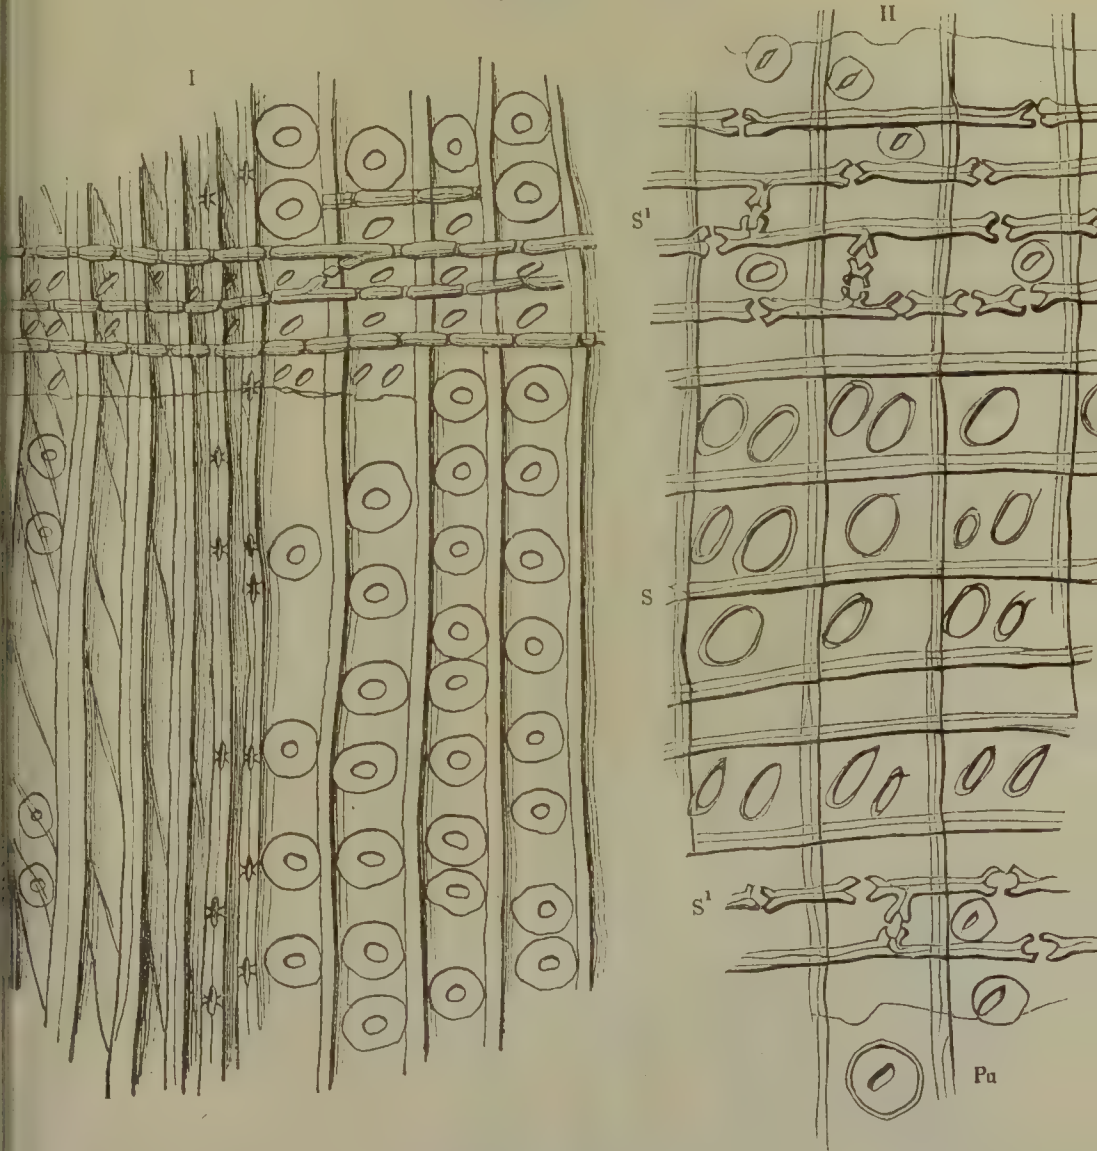 I
II
S¹
S
S¹
Pu